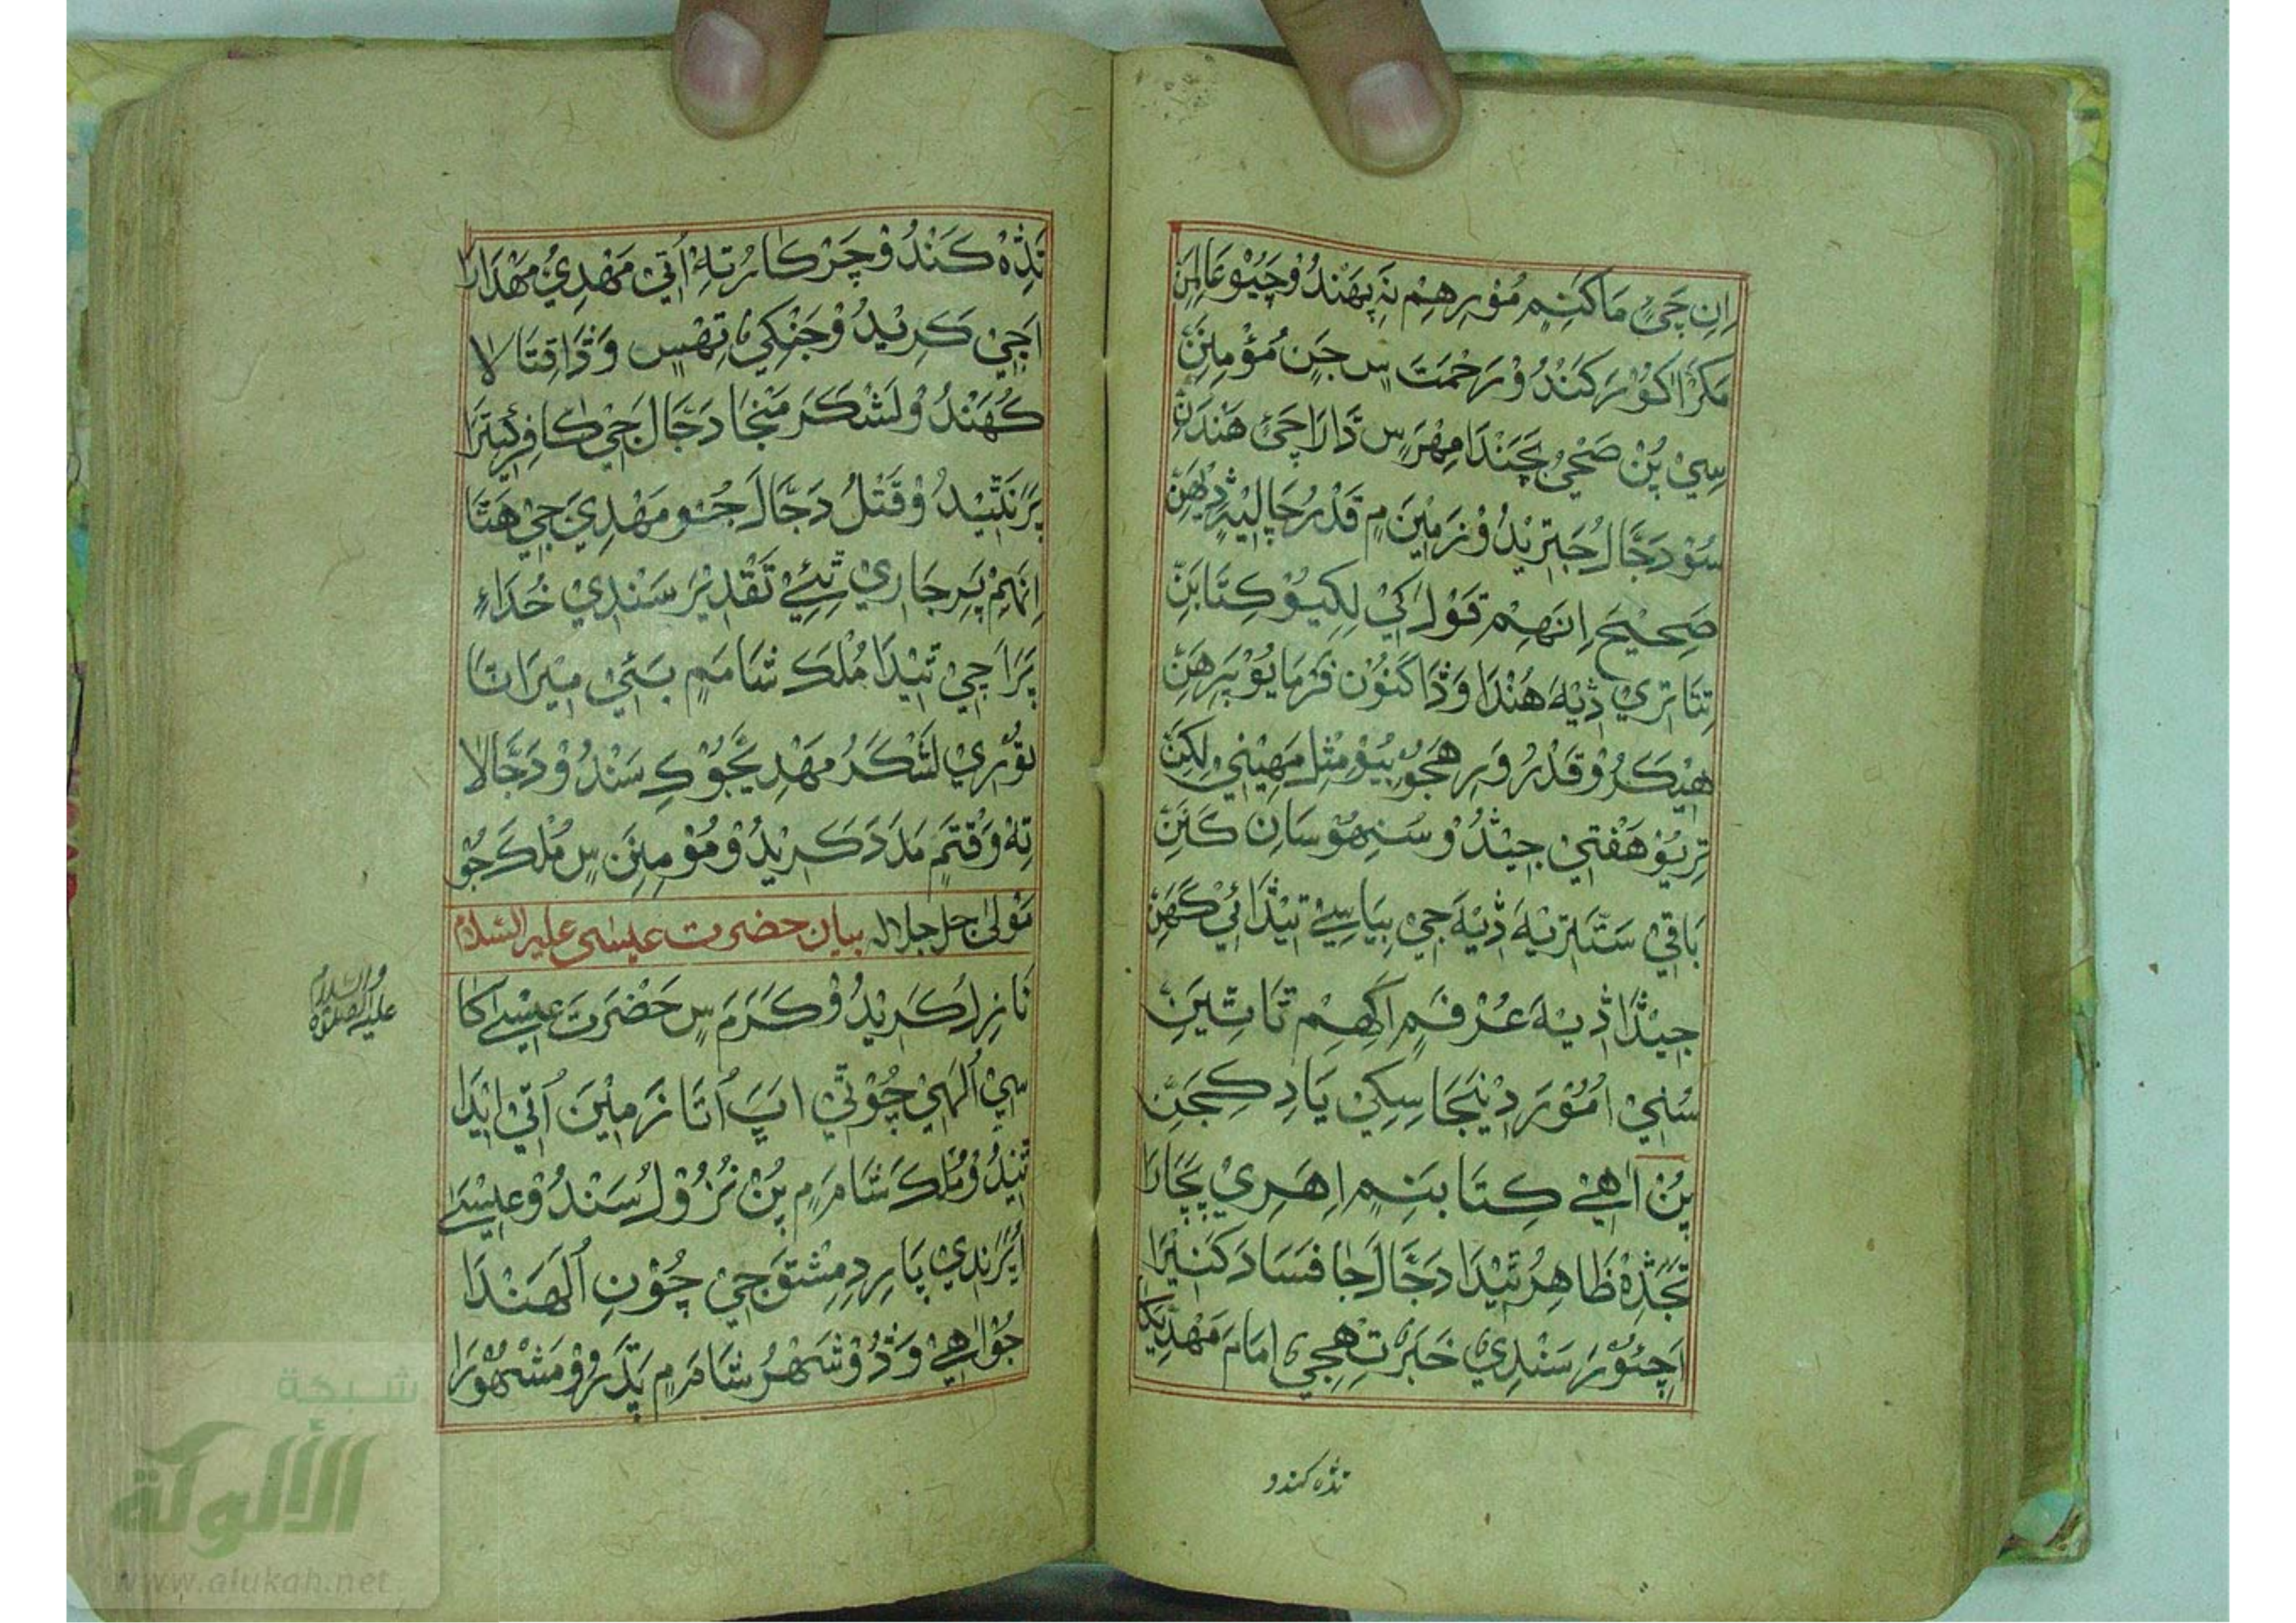 اِنِ چَيٖ مَا كَنٖمِ مُوْرِهِمْ نَہ پھَنْدُوْ چَيُوْ عَالِمَنْ
مَكَرْ اَكُوْرَ كَنْدُوْ رَحْمَتَ سٖ جَنِ مُؤْمِنِنْ
سِيْ پُنْ صَحِيْ بَچَنْدَا مِهْرَسٖ دَارَا چَئٖ هَنْدَنْ
سُوْ دَجَّالُ جَيتَرِيْدُوْ زَمِيْنَ مٖ قَدْرُ چَالِيْهَ ڏِيْهَنْ
صَحِيْحِ اِنَهِمْ قَوْلَ كِيْ لِكِيُوْ كِتَابَنْ
تِتَا تِرِيْ ڏِيْهَ هُنْدَا وَڏَا كَنُوْن فَرْمَايُوْ پِيْرِهَنْ
هِيْكَرُوْ قَدْرُ وَرِهَجُوْ بِيُوْ مِثْلِ مَهِيْنٖيْ لِكِنْ
تِرِيُوْ هَفْتٖيْ جِيْڏُوْ سُنِهُوْ سَانِ كَنَنْ
بَاقِيْ سَتَّتِرِيْهَ ڏِيْهَ جِيْ بِيَا سِيْ تِيْڏَائِيْ كَهَنْ
جِيْڏَا ڏِيْهَ عُرْفَمٖ اَكِهِمْ تَا تِيَنْ
سُنِيْ اُمُوْرَ دِيْنَجَا سِكِيْ يَادِ كِجَنْ
پُنْ اَهٖيْ كِتَابَنٖمِ اِهَرِيْ پَچَارَا
تَجَڏِهْ ظَاهِرُ تِيْدَا دَجَّالَ جَا فَسَادَ كَنِيْرَا
اَچِئُوْرَ سَنْدِيْ خَبَرَ تِهِجِيْ اِمَامَ مَهْدِيْكَا
تڏه كندو
تَڏِهْ كَنْدُوْ چَرْكَارُ تِهْ اُتِيْ مَهْدِيُ مَهْدَارَا
اَچِيْ كَرِيْدُوْ جَنْكِيْ تِهْسٖ وَڏَا قِتَالَا
كُهَنْدُوْ لَشْكَرَ مَنْجَا دَجَّالَ جِيْ كَافِرَ كِيْتَرَا
پَرَ نَتِيْدُوْ قَتْلُ دَجَّالَ جُوْ مَهْدِيَ جِيْ هَتَا
اِنَهِمْ پَرِ جَارِيْ تِئِيْ تَقْدِيْرَ سَنْدِيْ خُدَاءِ
پَرَا جِيْ تِيْدَا مُلْكَ شَامَمٖ بَئِيْ مِيْرَاتَا
تُوْرِيْ لَشْكَرُ مَهْدِيَجُوْ كِ سَنْدُوْ دَجَّالَا
تِهْ وَقْتَمٖ مَدَدَ كَرِيْدُوْ مُوْمِنِنَ سٖ مُلْكَ جُوْ
مَوْلىٰ جل جلاله بيان حضرت عيسى عليه السلام
نَازِلُ كَرِيْدُوْ كَرَمَ سٖ حَضْرَتَ عِيْسٰى كَا
عليه الصلوة والسلام
سِيْ اُلَهِيْ چُوْتِيْ اَپَ اُتَا زَمِيْنَ اُتِيْ اِيْدَا
تِيْدُوْ مُلْكَ شَامَ مٖ پُنْ نُزُوْلُ سَنْدُوْ عِيْسٰى
اُپَرَنْدِيْ پَارِ دِمِشْقَ جِيْ چُوْنِ اُلَهَنْدَا
جُوْ اَهٖيْ وَڏُوْ شَهْرُ شَامَ مٖ پَدَرُوْ مَشْهُوْرَا
شبكة
الألوكة
www.alukah.net